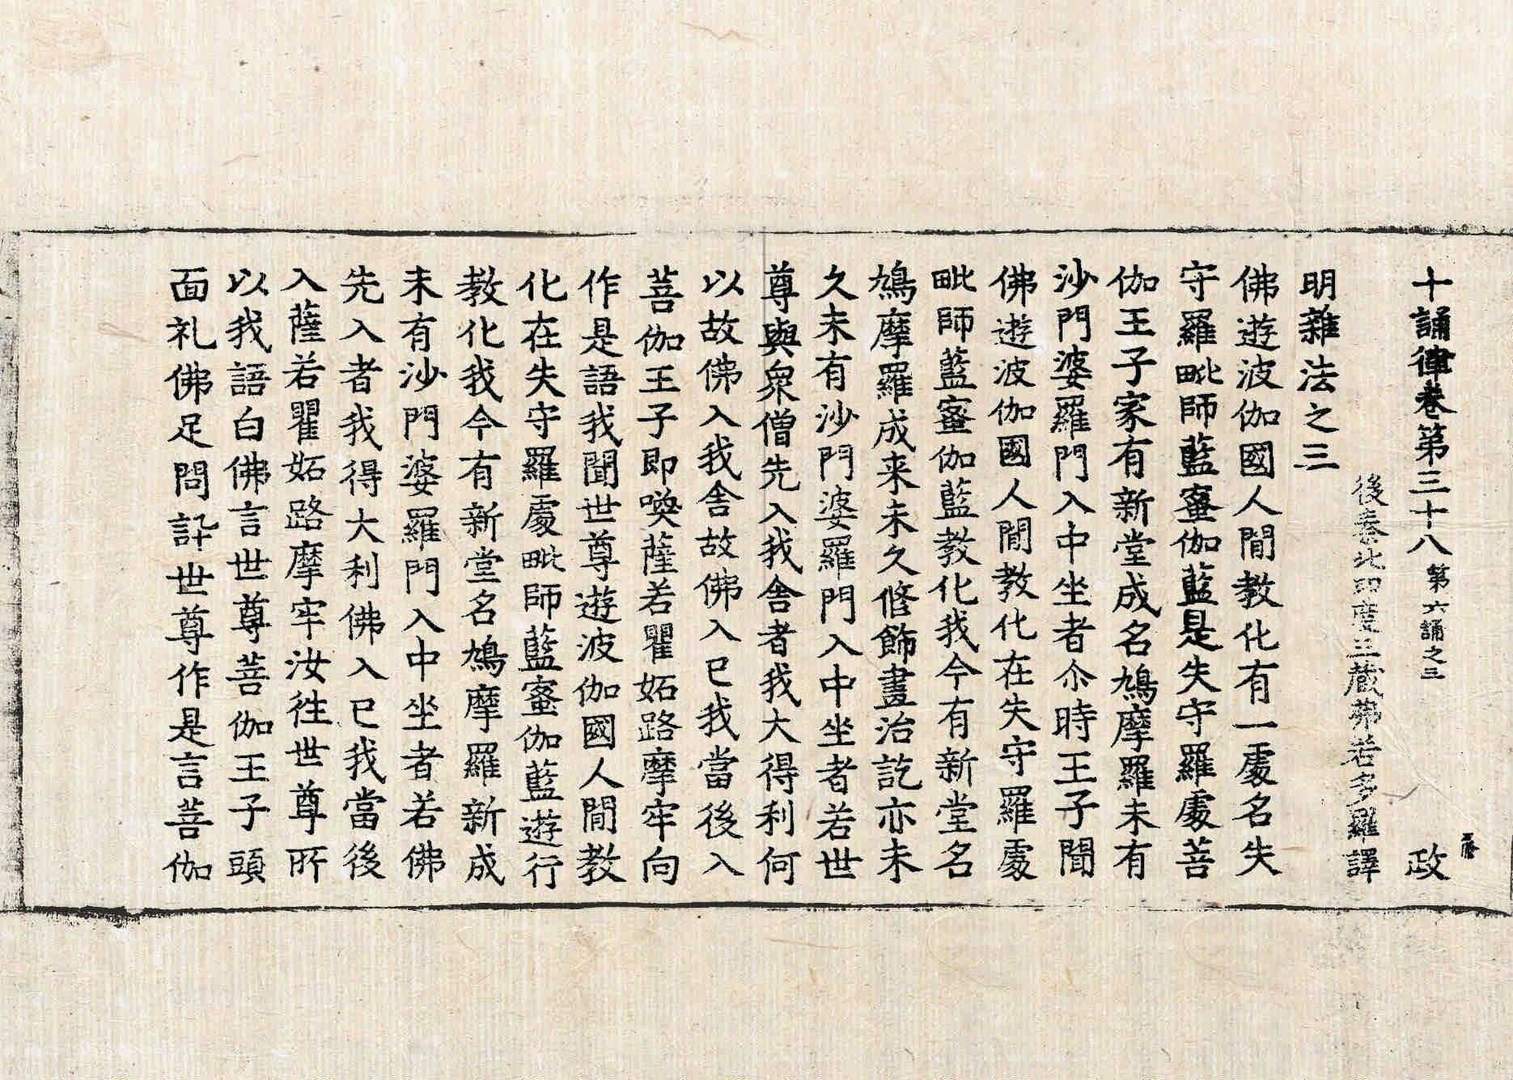 十誦律卷第三十八 第六誦之三 政
後秦北印度三藏弗若多羅譯
明雜法之三
佛遊波伽國人間教化有一處名失
守羅毗師藍蜜伽藍是失守羅處菩
伽王子家有新堂成名鳩摩羅未有
沙門婆羅門入中坐者尒時王子聞
佛遊波伽國人間教化在失守羅處
毗師藍蜜伽藍教化我今有新堂名
鳩摩羅成来未久修飾畫治訖亦未
久未有沙門婆羅門入中坐者若世
尊與衆僧先入我舍者我大得利何
以故佛入我舍故佛入已我當後入
菩伽王子即喚薩若瞿妬路摩牢向
作是語我聞世尊遊波伽國人間教
化在失守羅處毗師藍蜜伽藍遊行
教化我今有新堂名鳩摩羅新成
未有沙門婆羅門入中坐者若佛
先入者我得大利佛入已我當後
入薩若瞿妬路摩牢汝徃世尊所
以我語白佛言世尊菩伽王子頭
面礼佛足問訊世尊作是言菩伽